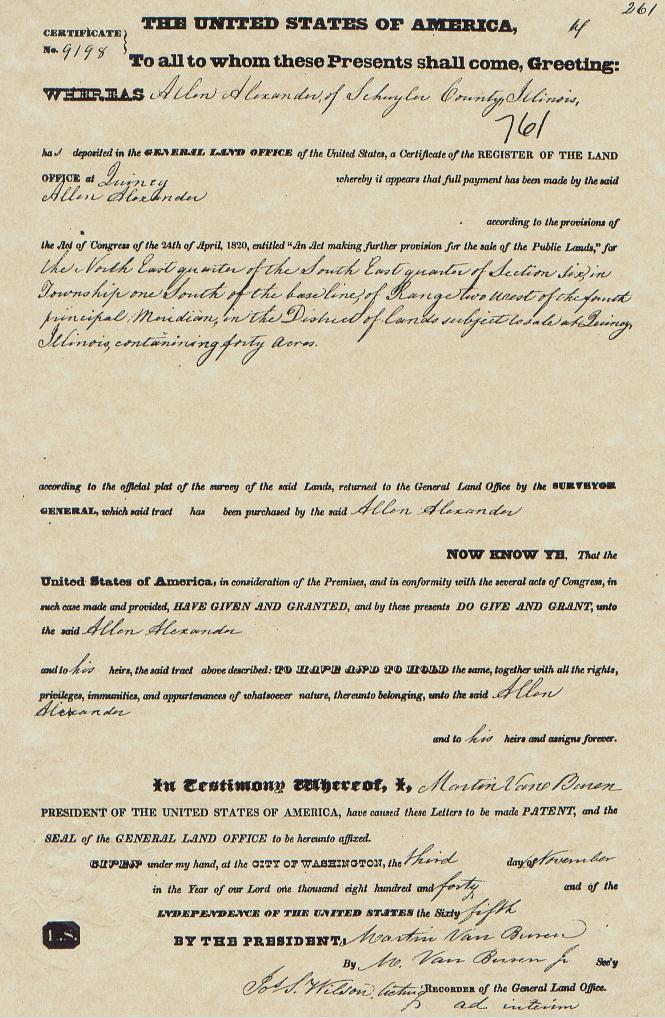 261
CERTIFICATE
No. 9198
THE UNITED STATES OF AMERICA,
To all to whom these Presents shall come, Greeting:
WHEREAS Allen Alexander, of Schuyler County, Illinois,
761
ha s deposited in the GENERAL LAND OFFICE of the United States, a Certificate of the REGISTER OF THE LAND
OFFICE at Quincy whereby it appears that full payment has been made by the said
Allen Alexander
according to the provisions of
the Act of Congress of the 24th of April, 1820, entitled "An Act making further provision for the sale of the Public Lands," for
the North East quarter of the South East quarter of Section Six, in
Township one South of the base line, of Range two West of the fourth
principal Meridian, in the District of Lands subject to sale at Quincy,
Illinois, containing forty Acres.
according to the official plat of the survey of the said Lands, returned to the General Land Office by the SURVEYOR
GENERAL, which said tract has been purchased by the said Allen Alexander
NOW KNOW YE, That the
United States of America, in consideration of the Premises, and in conformity with the several acts of Congress, in
such case made and provided, HAVE GIVEN AND GRANTED, and by these presents DO GIVE AND GRANT, unto
the said Allen Alexander
and to his heirs, the said tract above described: TO HAVE AND TO HOLD the same, together with all the rights,
privileges, immunities, and appurtenances of whatsoever nature, thereunto belonging, unto the said Allen
Alexander
and to his heirs and assigns forever.
In Testimony Whereof, I, Martin Van Buren
PRESIDENT OF THE UNITED STATES OF AMERICA, have caused these Letters to be made PATENT, and the
SEAL of the GENERAL LAND OFFICE to be hereunto affixed.
GIVEN under my hand, at the CITY OF WASHINGTON, the third day of November
in the Year of our Lord one thousand eight hundred and forty and of the
INDEPENDENCE OF THE UNITED STATES the Sixty fifth
L.S.
BY THE PRESIDENT: Martin Van Buren
By M. Van Buren Jr Sec'y
Jos. S. Wilson, Acting RECORDER of the General Land Office.
ad interim